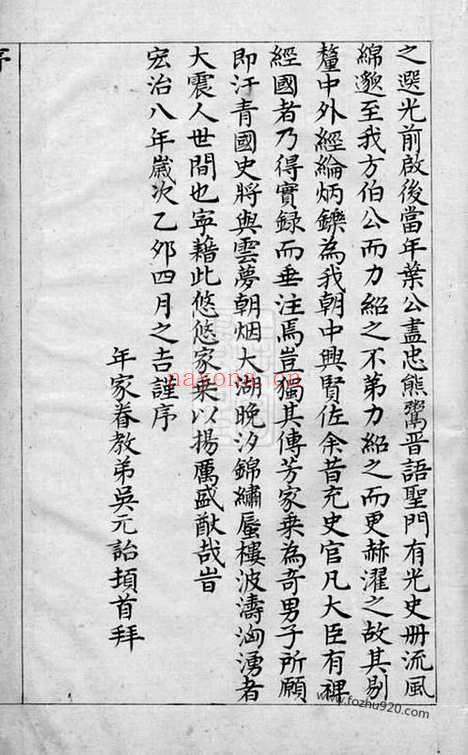 之選光前啟後當年葉公盡忠熊鬻晉語聖門有光史冊流風
綿邈至我方伯公而力紹之不第力紹之而更赫濯之故其剔
釐中外經綸炳鑠為我朝中興賢佐余昔充史官凡大臣有裨
經國者乃得實錄而垂注焉豈獨其傳芳家乘為奇男子所願
即汗青國史將與雲夢朝烟大湖晚汐錦繡蜃樓波濤洶湧者
大震人世間也寧藉此悠悠家乘以揚厲盛猷哉旹
宏治八年歲次乙夘四月之吉謹序
年家眷教弟吳元詒頓首拜
序
nayona.cn
www.fozhu920.com